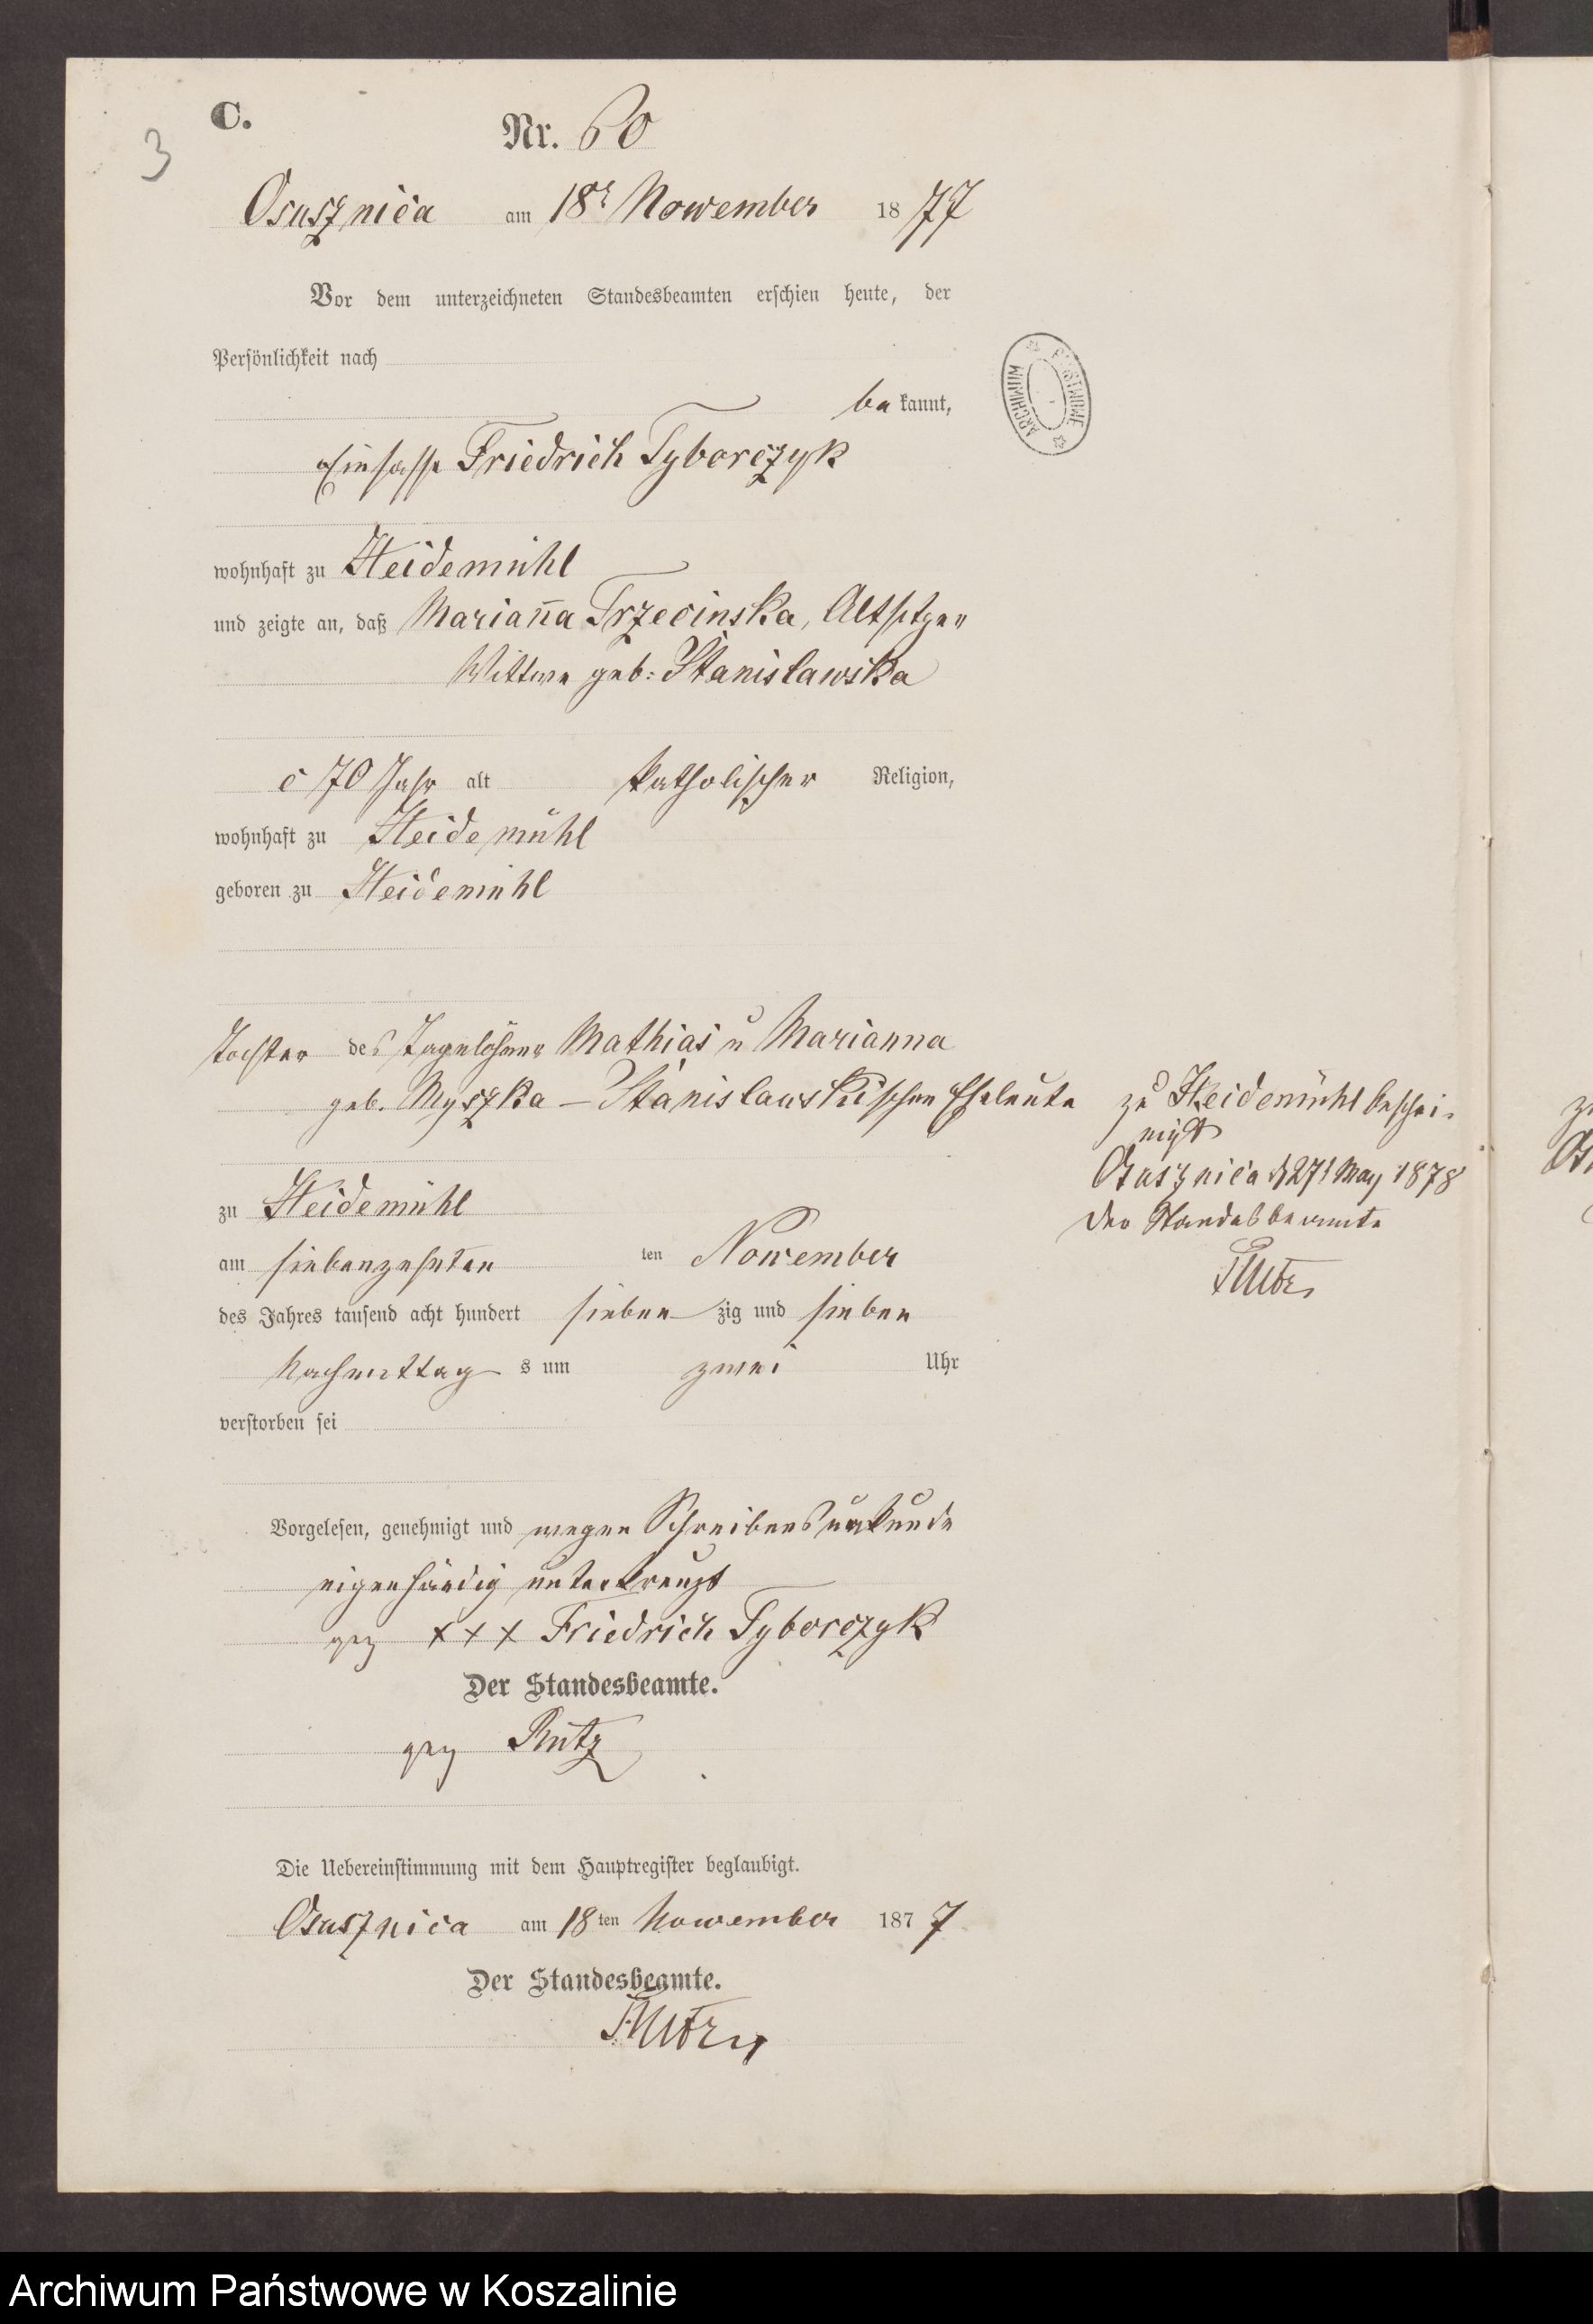 C.
3
Nr. 60
Osusznica am 18t Nowember 1877
Vor dem unterzeichneten Standesbeamten erschien heute, der
Persönlichkeit nach
be kannt,
Einsasse Friedrich Tyborczyk
wohnhaft zu Heidemühl
und zeigte an, daß Marian̄a Trzecinska, Altsitzer
Wittwe geb: Stanislawska
c 70 Jahr alt katholischer Religion,
wohnhaft zu Heidemühl
geboren zu Heidemühl
Tochter des Tagelöhner Mathias u Marianna
geb. Myszka – Stanislawskischen Eheleute zu Heidemühl beschei-
nigt
Osusznica d 27t May 1878
Der Standesbeamte
Rutz
zu Heidemühl
am siebenzehnten ten November
des Jahres tausend acht hundert sieben zig und sieben
Nachmittag s um zwei Uhr
verstorben sei
Vorgelesen, genehmigt und wegen Schreibensunkunde
eigenhändig unterkreuzt
gez x x x Friedrich Tyborczyk
Der Standesbeamte.
gez Rutz
Die Uebereinstimmung mit dem Hauptregister beglaubigt.
Osusznica am 18 ten Nowember 187 7
Der Standesbeamte.
Rutz
ARCHIWUM PAŃSTWOWE
Archiwum Państwowe w Koszalinie